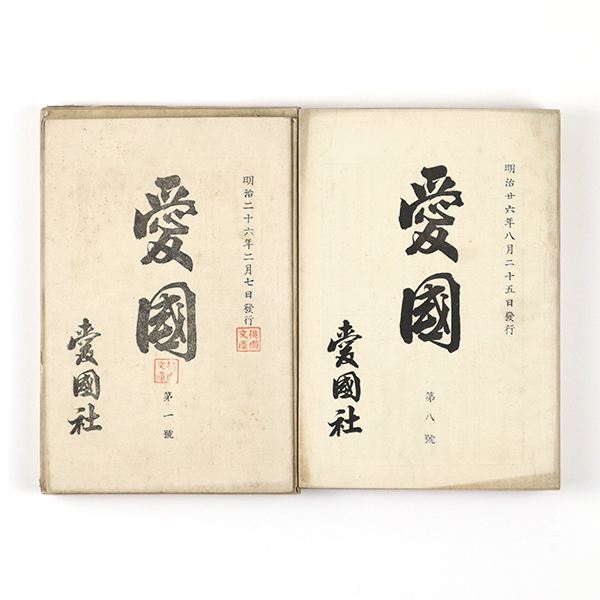 明治二十六年二月七日發行
愛國
第一號
愛國社
文庫
文庫
明治廿六年八月二十五日發行
愛國
第八號
愛國社